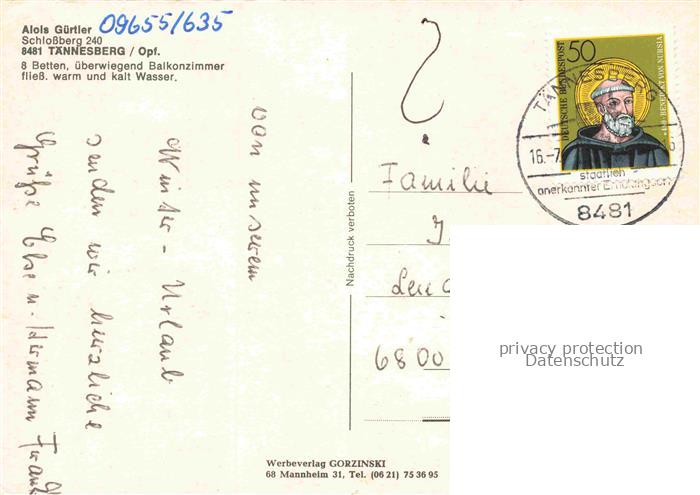 Alois Gürtler 09655/635
Schloßberg 240
8481 TÄNNESBERG / Opf.
8 Betten, überwiegend Balkonzimmer
fließ. warm und kalt Wasser.
von unserem
Winter-Urlaub
senden wir herzliche
Grüße
Nachdruck verboten
50
DEUTSCHE BUNDESPOST
BENEDIKT VON NURSIA
TÄNNESBERG
16.-7
staatlich
anerkannter Erholungsort
8481
?
Familie
6800
privacy protection
Datenschutz
Werbeverlag GORZINSKI
68 Mannheim 31, Tel. (06 21) 75 36 95